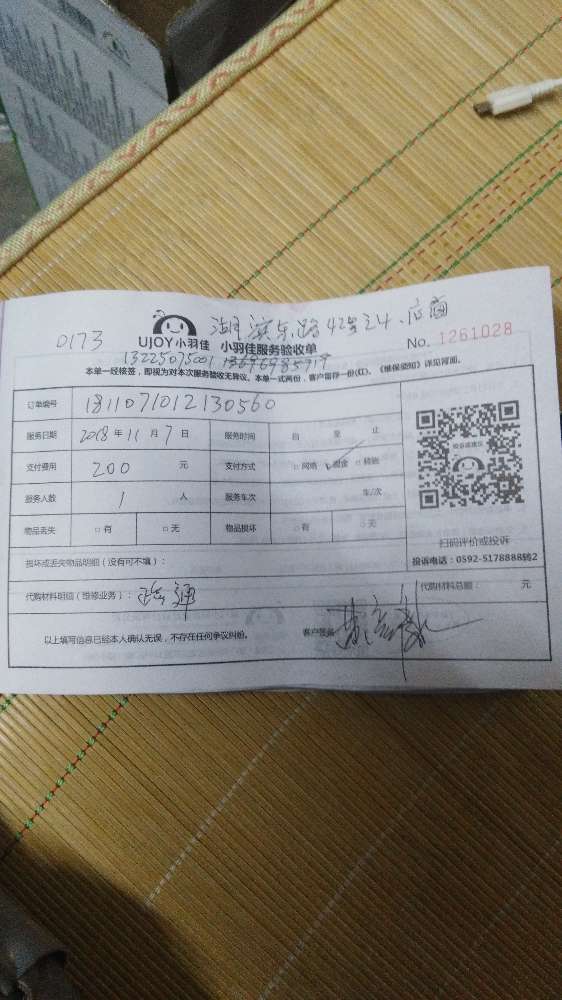 湖滨东路42号之4、店面
0173
UJOY小羽佳 小羽佳服务验收单
No. 1261028
13225075001 13696985919
本单一经接签，即视为对本次服务验收无异议。本单一式两份，客户留存一份(红)。《维保须知》详见背面。
订单编号 1811071012130560
服务日期 2018年11月7日 服务时间 自 至 止
支付费用 200 元 支付方式 □网络 ✓现金 □转账
服务人数 1 人 服务车次 车/次
物品丢失 □有 □无 物品损坏 □有 □无
扫码评价或投诉
投诉电话：0592-5178888转2
损坏或丢失物品明细（没有可不填）：
代购材料明细（维修业务）： 疏通 代购材料总额： 元
以上填写信息已经本人确认无误，不存在任何争议纠纷。 客户签名